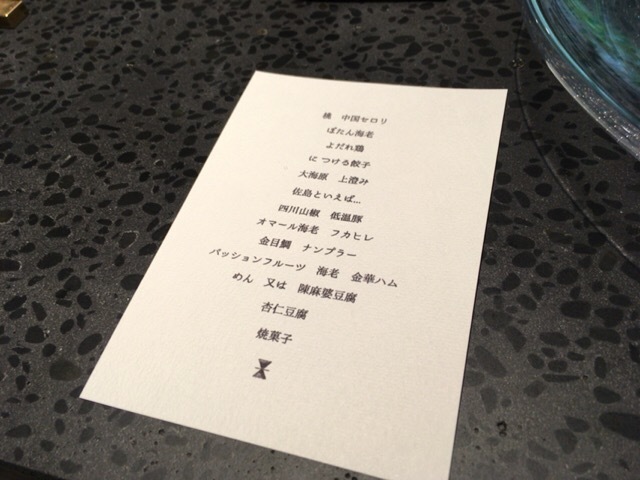 桃　中国セロリ
ぼたん海老
よだれ鶏
に つける餃子
大海原　上澄み
佐島といえば...
四川山椒　低温豚
オマール海老　フカヒレ
金目鯛　ナンプラー
パッションフルーツ　海老　金華ハム
めん　又は　陳麻婆豆腐
杏仁豆腐
焼菓子